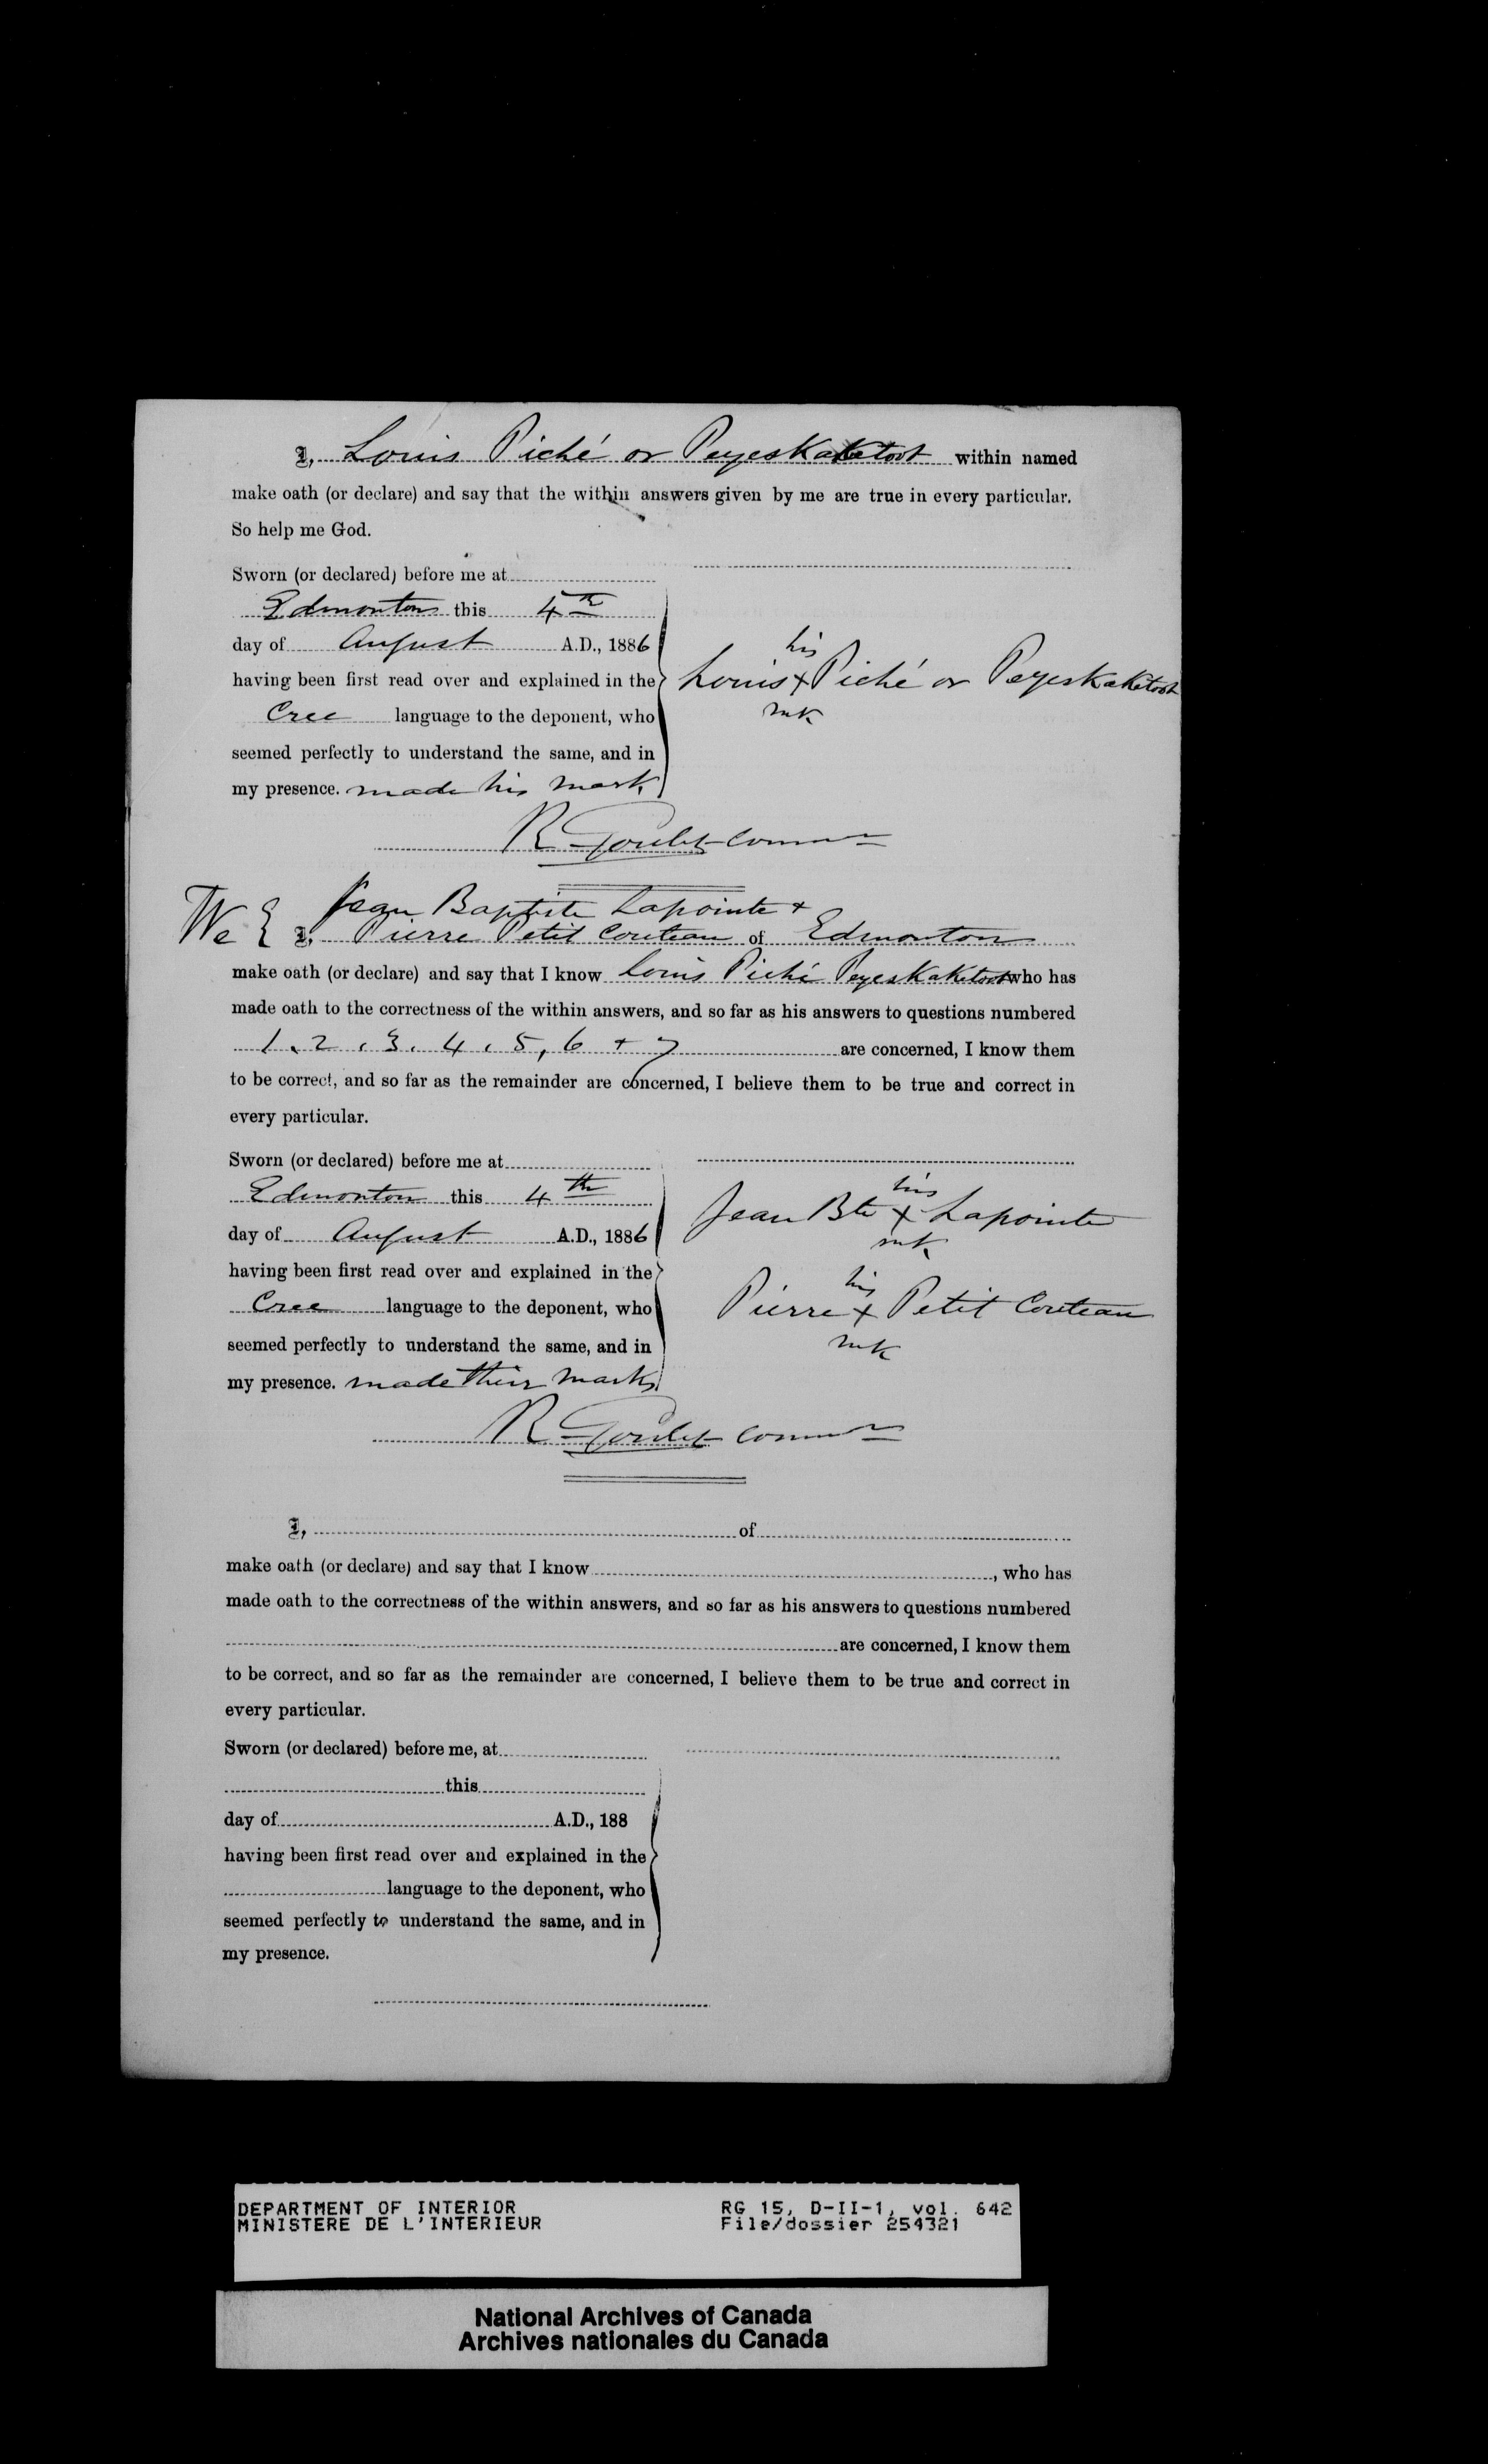 I, Louis Piché or Peyeskaketoot within named
make oath (or declare) and say that the within answers given by me are true in every particular.
So help me God.
Sworn (or declared) before me at
Edmonton this 4th
day of August A.D., 1886
having been first read over and explained in the
Cree language to the deponent, who
seemed perfectly to understand the same, and in
my presence. made his mark
his
Louis x Piché or Peyeskaketoot
mk
R Goulet Commr
We { Jean Baptiste Lapointe +
I, Pierre Petit Couteau of Edmonton
make oath (or declare) and say that I know Louis Piché Peyeskaketoot who has
made oath to the correctness of the within answers, and so far as his answers to questions numbered
1, 2, 3, 4, 5, 6 + 7 are concerned, I know them
to be correct, and so far as the remainder are concerned, I believe them to be true and correct in
every particular.
Sworn (or declared) before me at
Edmonton this 4th
day of August A.D., 1886
having been first read over and explained in the
Cree language to the deponent, who
seemed perfectly to understand the same, and in
my presence. made their marks
his
Jean Bte x Lapointe
mk
his
Pierre x Petit Couteau
mk
R Goulet Commr
I, of
make oath (or declare) and say that I know , who has
made oath to the correctness of the within answers, and so far as his answers to questions numbered
are concerned, I know them
to be correct, and so far as the remainder are concerned, I believe them to be true and correct in
every particular.
Sworn (or declared) before me, at
this
day of A.D., 188
having been first read over and explained in the
language to the deponent, who
seemed perfectly to understand the same, and in
my presence.
DEPARTMENT OF INTERIOR RG 15, D-II-1, vol. 642
MINISTERE DE L'INTERIEUR File/dossier 254321
National Archives of Canada
Archives nationales du Canada